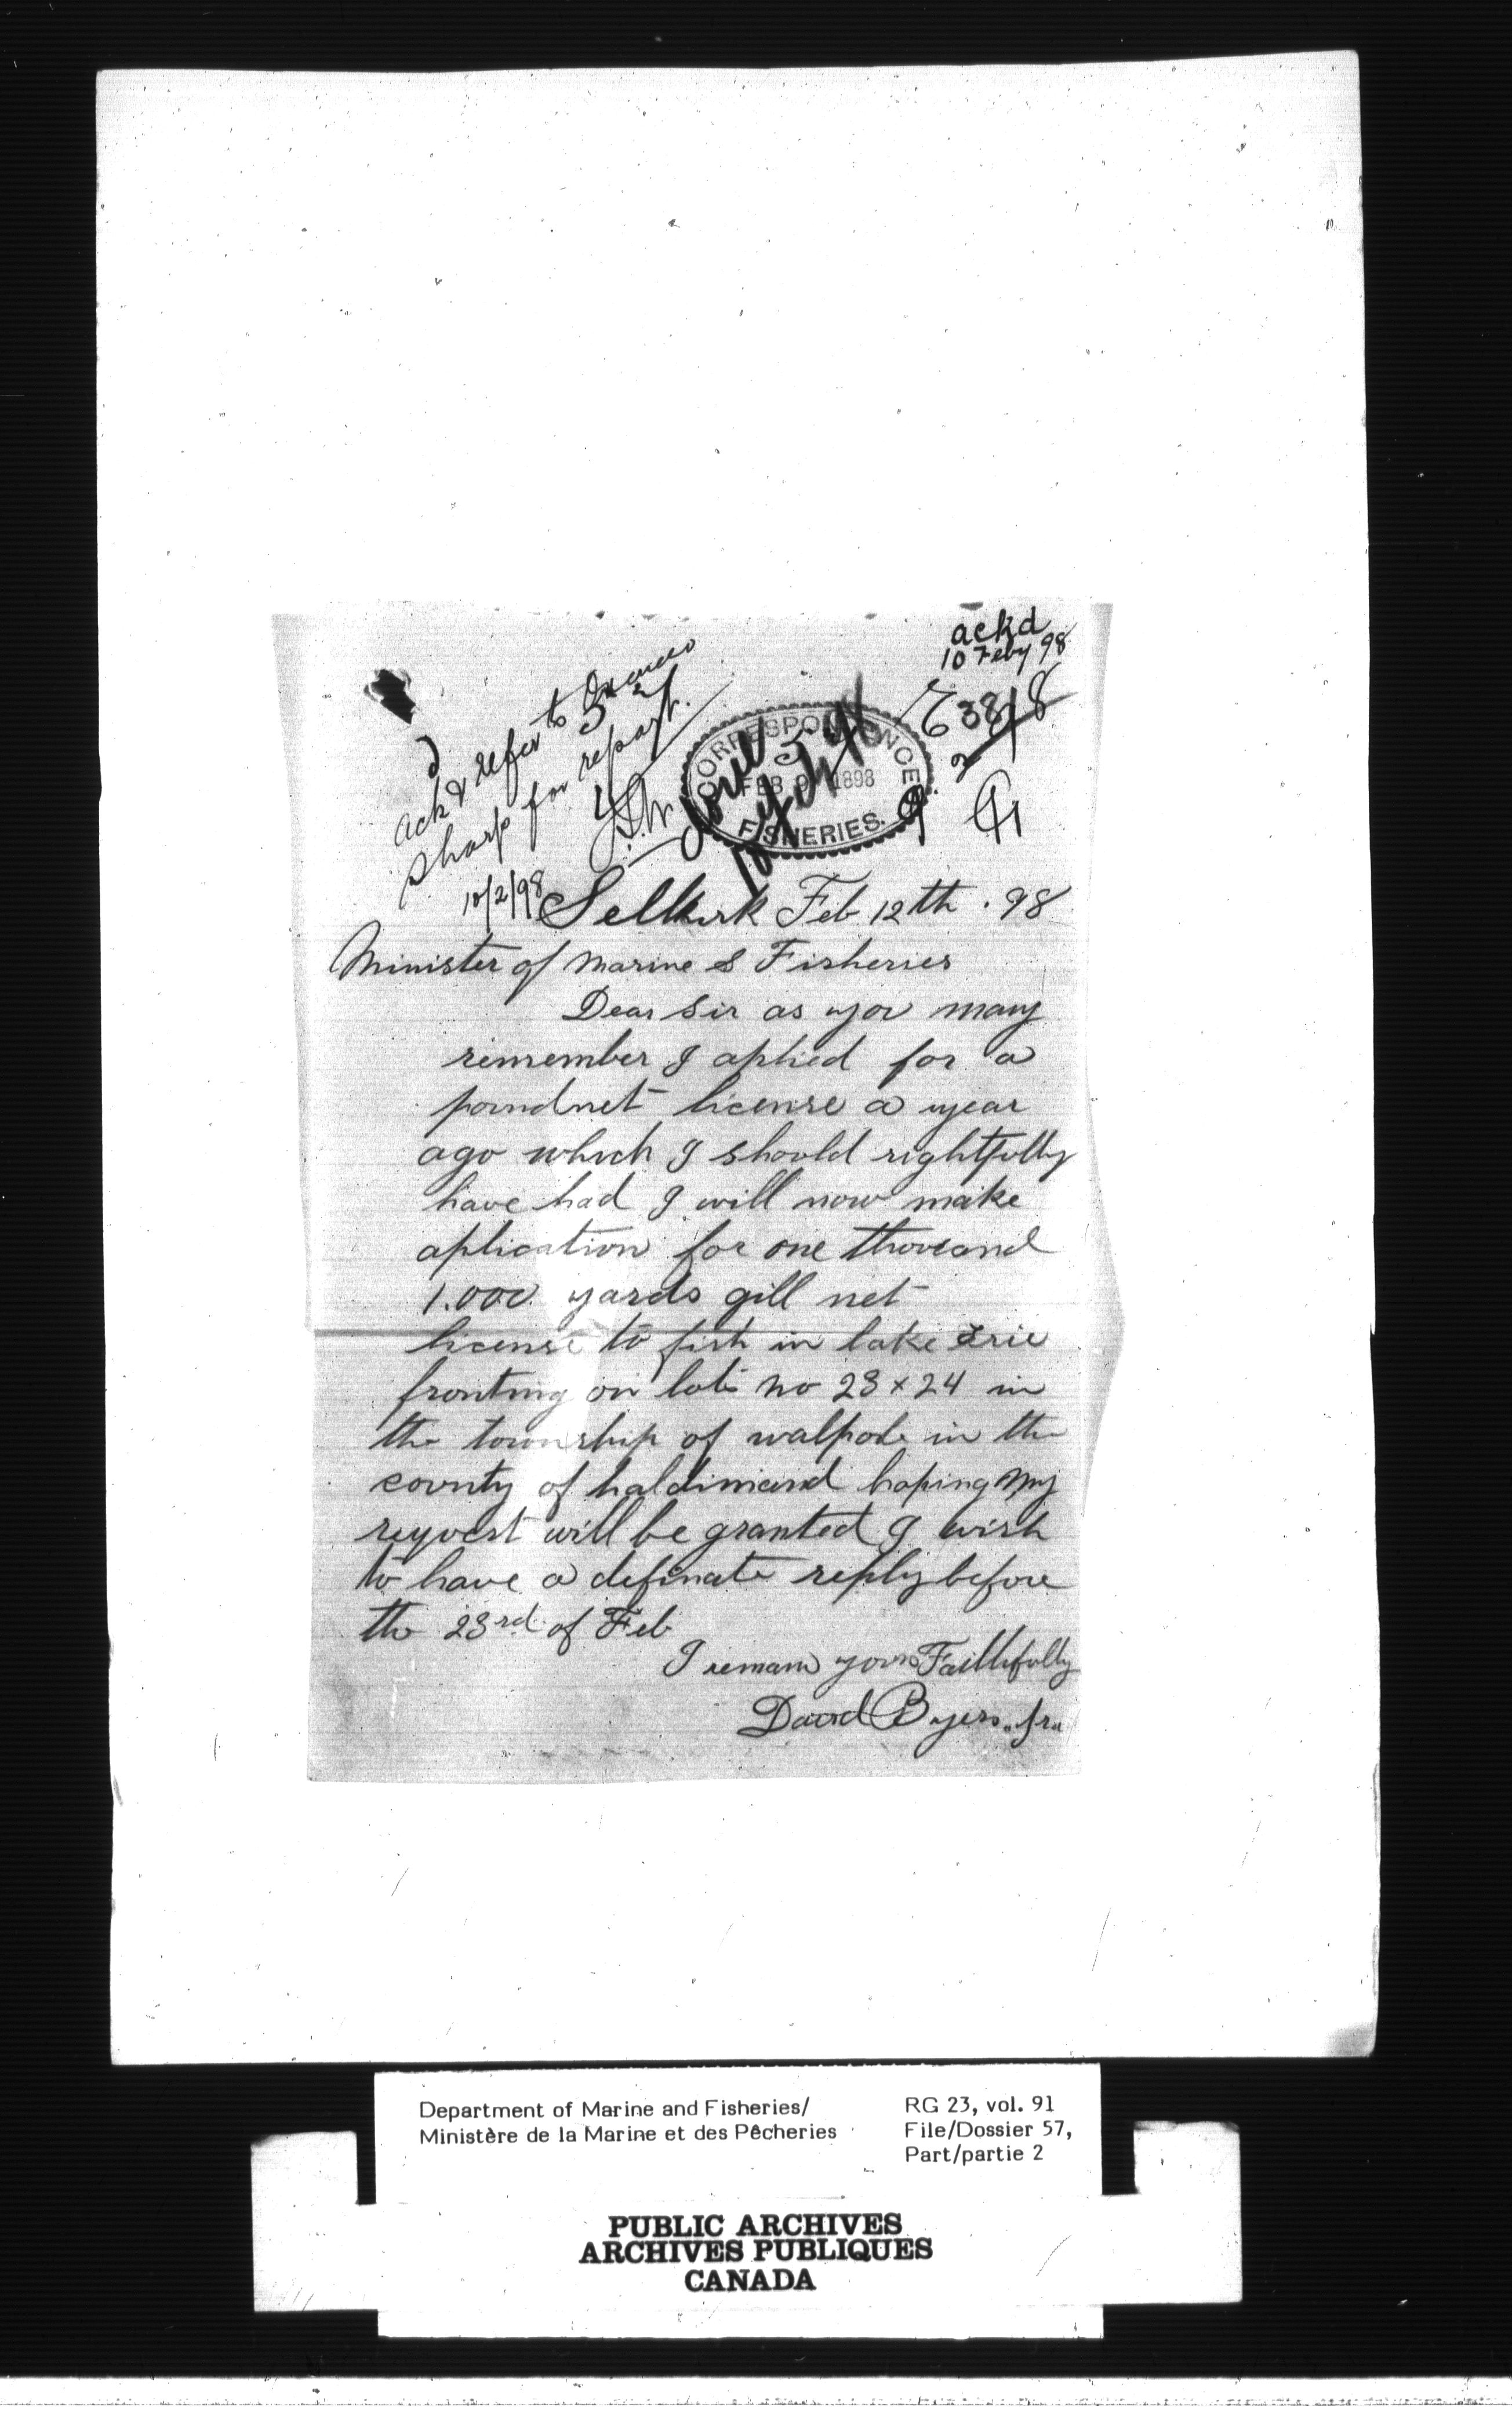 ackd
10 Feby 98
Ack & refer to
Sharp for report.
10/2/98
CORRESPONDENCE
FEB 9 1898
FISHERIES.
Selkirk Feb 12th . 98
Minister of Marine & Fisheries
Dear Sir as you may
remember I aplied for a
poundnet license a year
ago which I should rightfully
have had I will now make
aplication for one thousand
1.000. yards gill net
license to fish in lake Erie
fronting on lots no 23 x 24 in
the township of walpole in the
county of haldimand hoping my
request will be granted I wish
to have a definate reply before
the 23rd of Feb
I remain yours Faithfully
David Byers
Department of Marine and Fisheries/
Ministère de la Marine et des Pêcheries
RG 23, vol. 91
File/Dossier 57,
Part/partie 2
PUBLIC ARCHIVES
ARCHIVES PUBLIQUES
CANADA